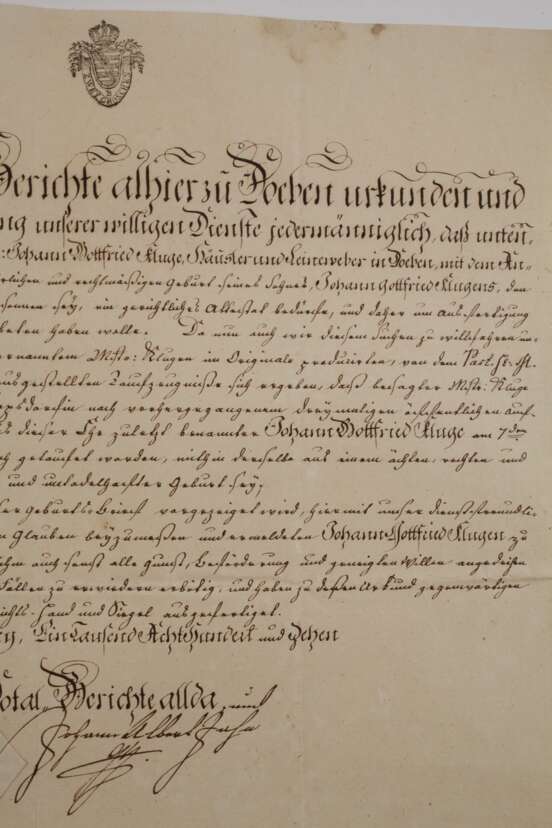 ZWEY GROSCHEN
Gerichte alhier zu Doeben urkunden und
ng unserer willigen Dienste jedermänniglich, daß unten
Johann Gottfried Kluge, Häusler und Leineweber in Doeben, mit dem An-
rlichen und rechtmäßigen Geburt seines Sohnes, Johann Gottfried Klugens, den
sonnen sey, ein gerichtliches Attestat bedürfe, und daher um Ausfertigung
beten haben wolle. Da nun auch wir diesem Suchen zu willfahren
ernanntem Mstr: Klugen im Originale producirten, von dem Past.
ausgestellten Taufzeugnisse sich ergeben, daß besagter Mstr: Kluge
nach vorhergegangenem dreymaligen öffentlichen Auf-
dieser Ehe zuletzt benannter Johann Gottfried Kluge am 7den
getaufet worden, mithin derselbe aus einem ächten, rechten und
und untadelhafter Geburt sey;
Geburts-Brief vorgezeiget wird, hiermit unser dienstfreundli-
n Glauben beyzumessen und ermeldeten Johann Gottfried Klugen zu
ihm auch sonst alle Gunst, Beförderung und geneigten Willen angedeihen
Fällen zu erwiedern erbötig, und haben zu deßen Urkund gegenwärtigen
richts-Hand und Siegel ausgefertiget.
Ein Tausend Acht Hundert und Zehen
Gerichte allda, und
Johann Albert Jahn